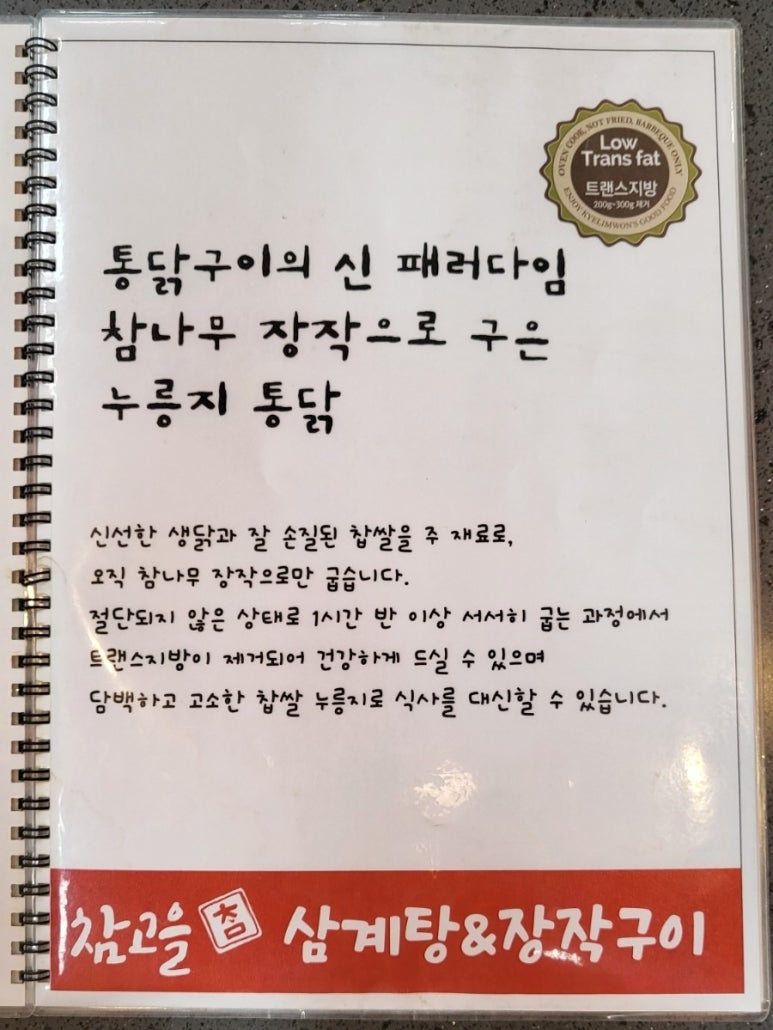 OVEN COOK, NOT FRIED, BARBEQUE ONLY
Low
Trans fat
트랜스지방
200g~300g 제거
ENJOY KYELIMWON'S GOOD FOOD
통닭구이의 신 패러다임
참나무 장작으로 구은
누릉지 통닭
신선한 생닭과 잘 손질된 찹쌀을 주 재료로,
오직 참나무 장작으로만 굽습니다.
절단되지 않은 상태로 1시간 반 이상 서서히 굽는 과정에서
트랜스지방이 제거되어 건강하게 드실 수 있으며
담백하고 고소한 찹쌀 누릉지로 식사를 대신할 수 있습니다.
참고을 참 삼계탕&장작구이